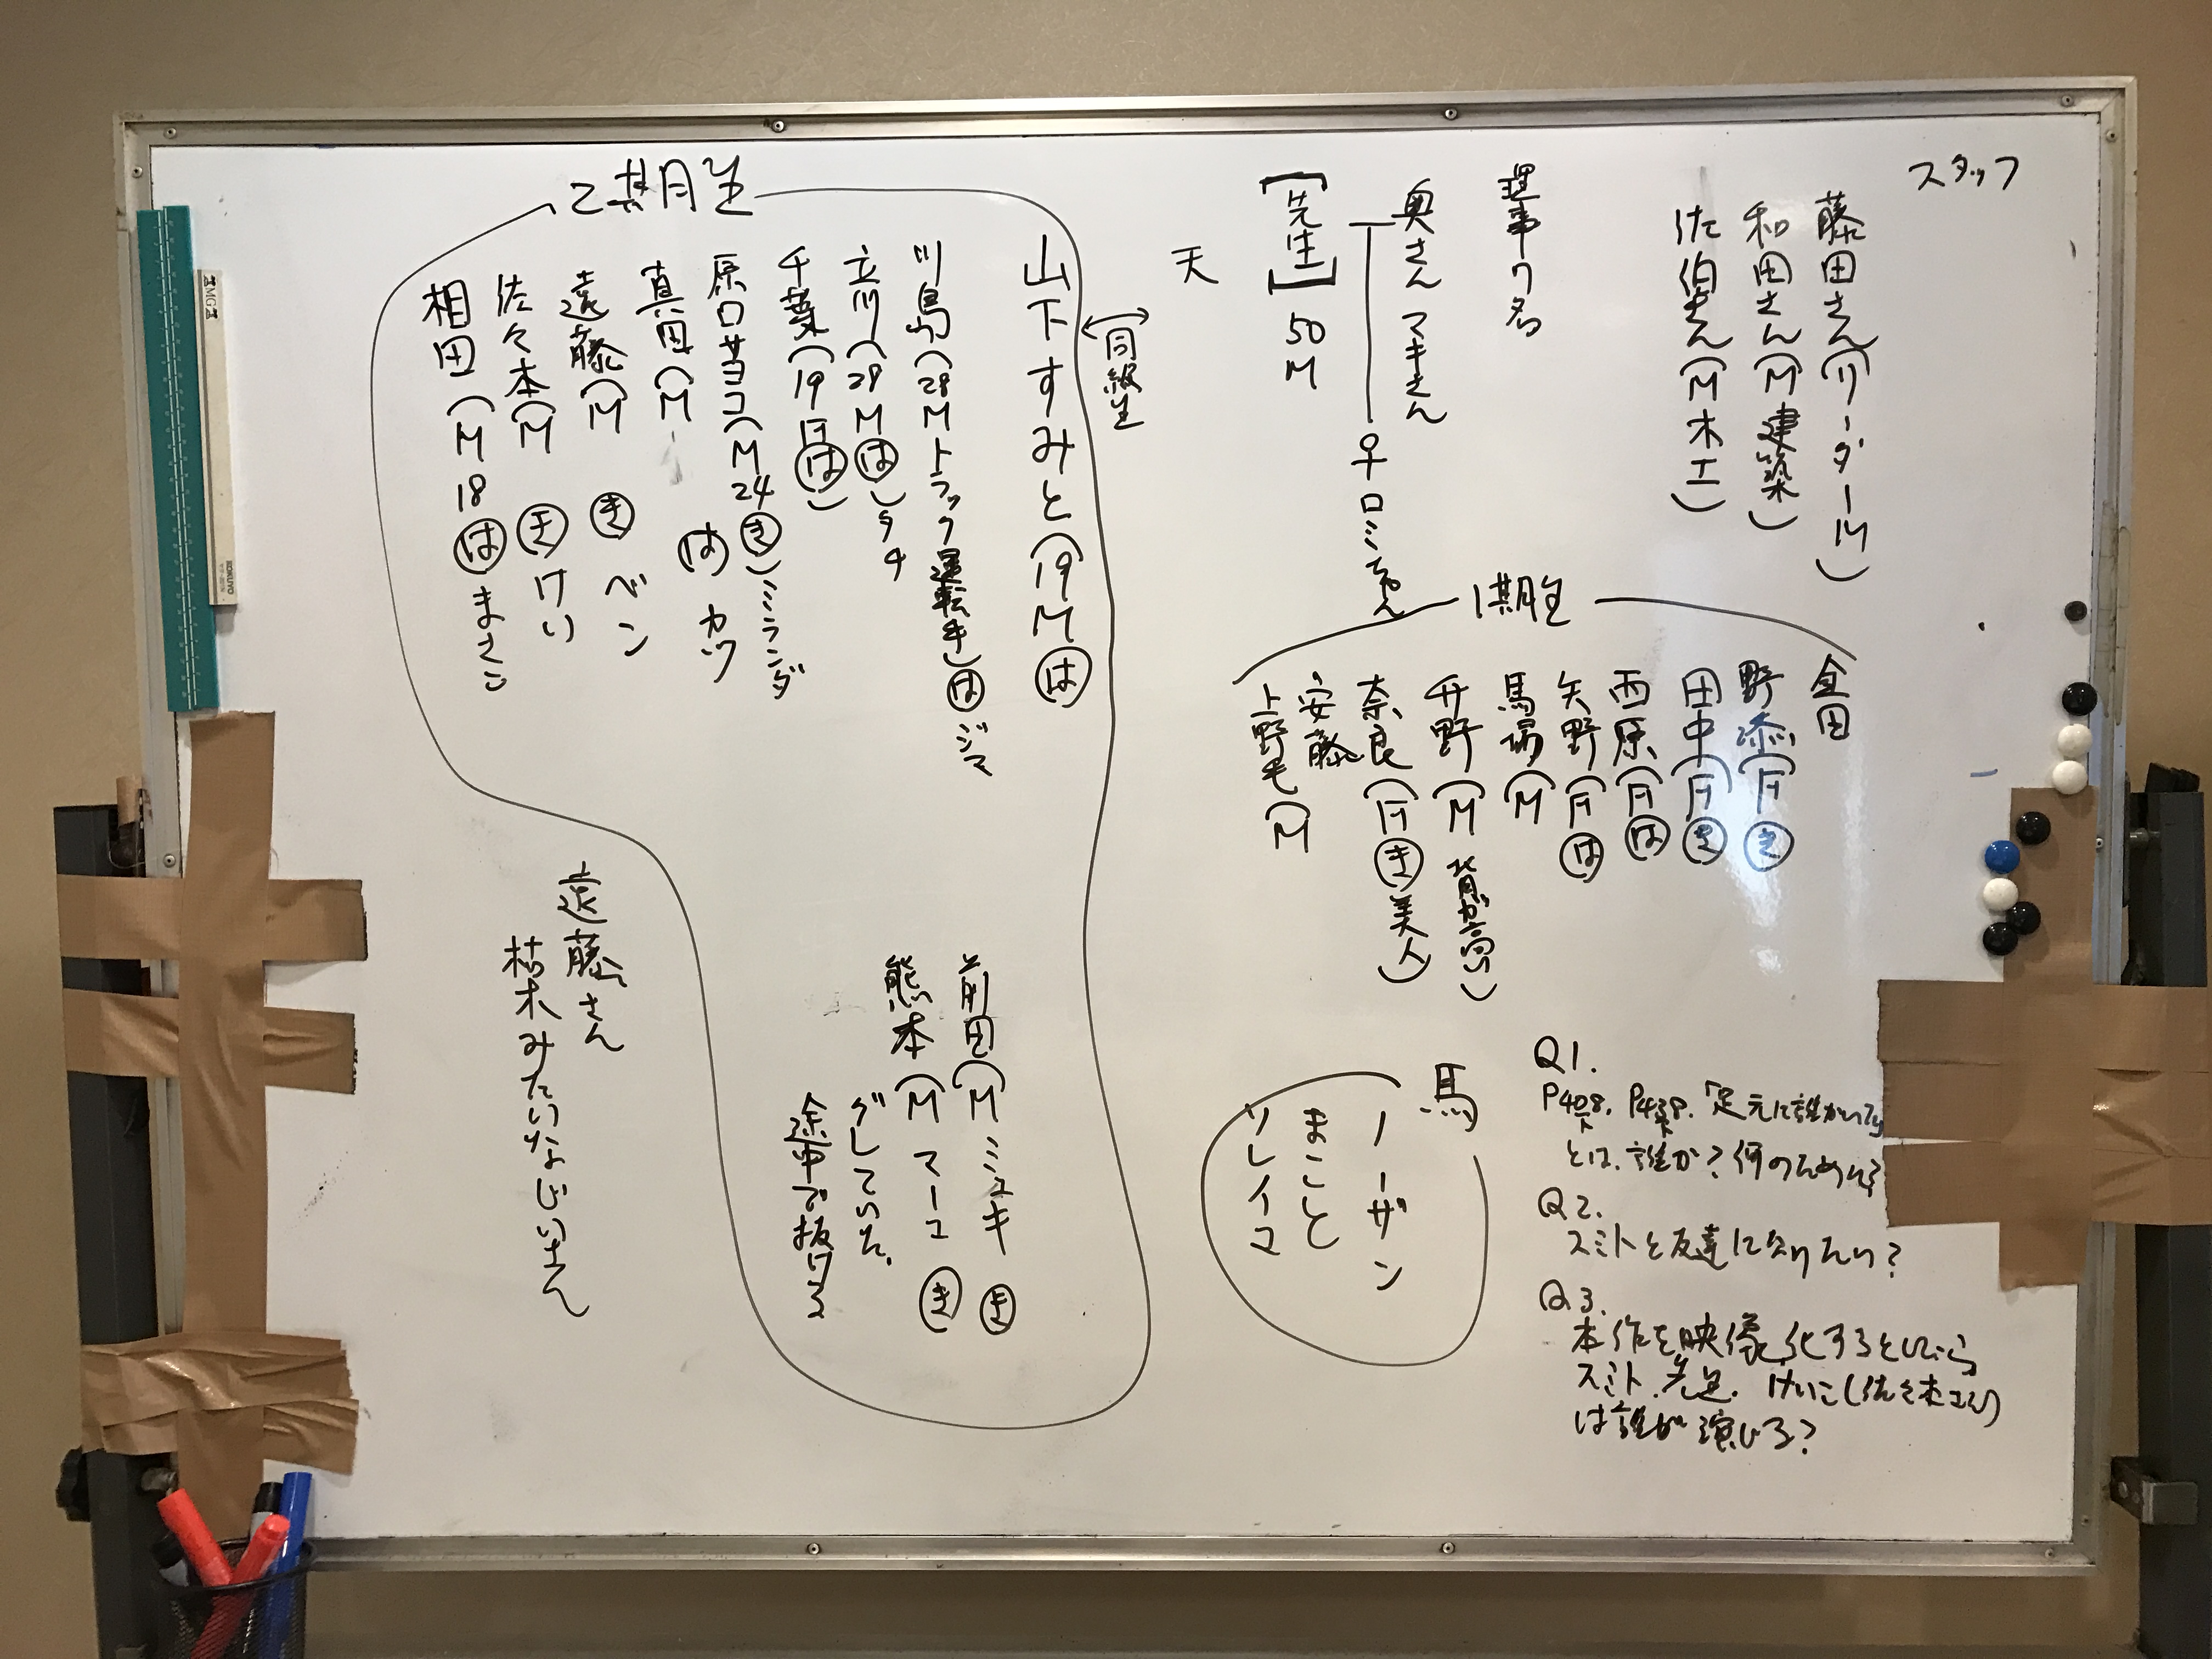 スタッフ
藤田さん(リーダー M)
和田さん(M 建築)
佐伯さん(M 木工)
理事7名
奥さん マキさん
【先生】50 M
ロミちゃん
天
同級生
1期生
金田
野添(F き
田中(F き
西原(F は
矢野(F は
馬場(M
野(M 背が高い)
奈良(F き 美人)
安藤
上野毛(M
2期生
山下すみと(19 M は
川島(28 M トラック運転手)は ジマ
立川(28 M は)タチ
千葉(19 F は)
原口サヨコ(M 24 き)ミランダ
真田(M は カツ
遠藤(M き ベン
佐々木(M き けい
相田(M 18 は まさこ
前田(M ミユキ き
熊本(M マーコ き
グレていた。
途中で抜ける
遠藤さん
枯木みたいなじいさん
馬
ノーザン
まこと
ソレイユ
Q1.
P408下. P438下.「足元に誰かいてる
とは、誰か?何のために?
Q2.
スミトと友達になりたい?
Q3.
本作を映像化するとしたら
スミト、先生、けいこ(佐々木さん)
は誰が演じる?
KOKUYO